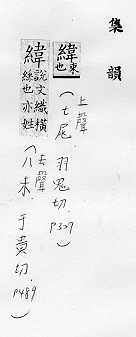 集韻
緯束也
上聲
（七尾 羽鬼切 P327）
緯說文織橫
絲也亦姓
去聲
（八未 于貴切 P489）